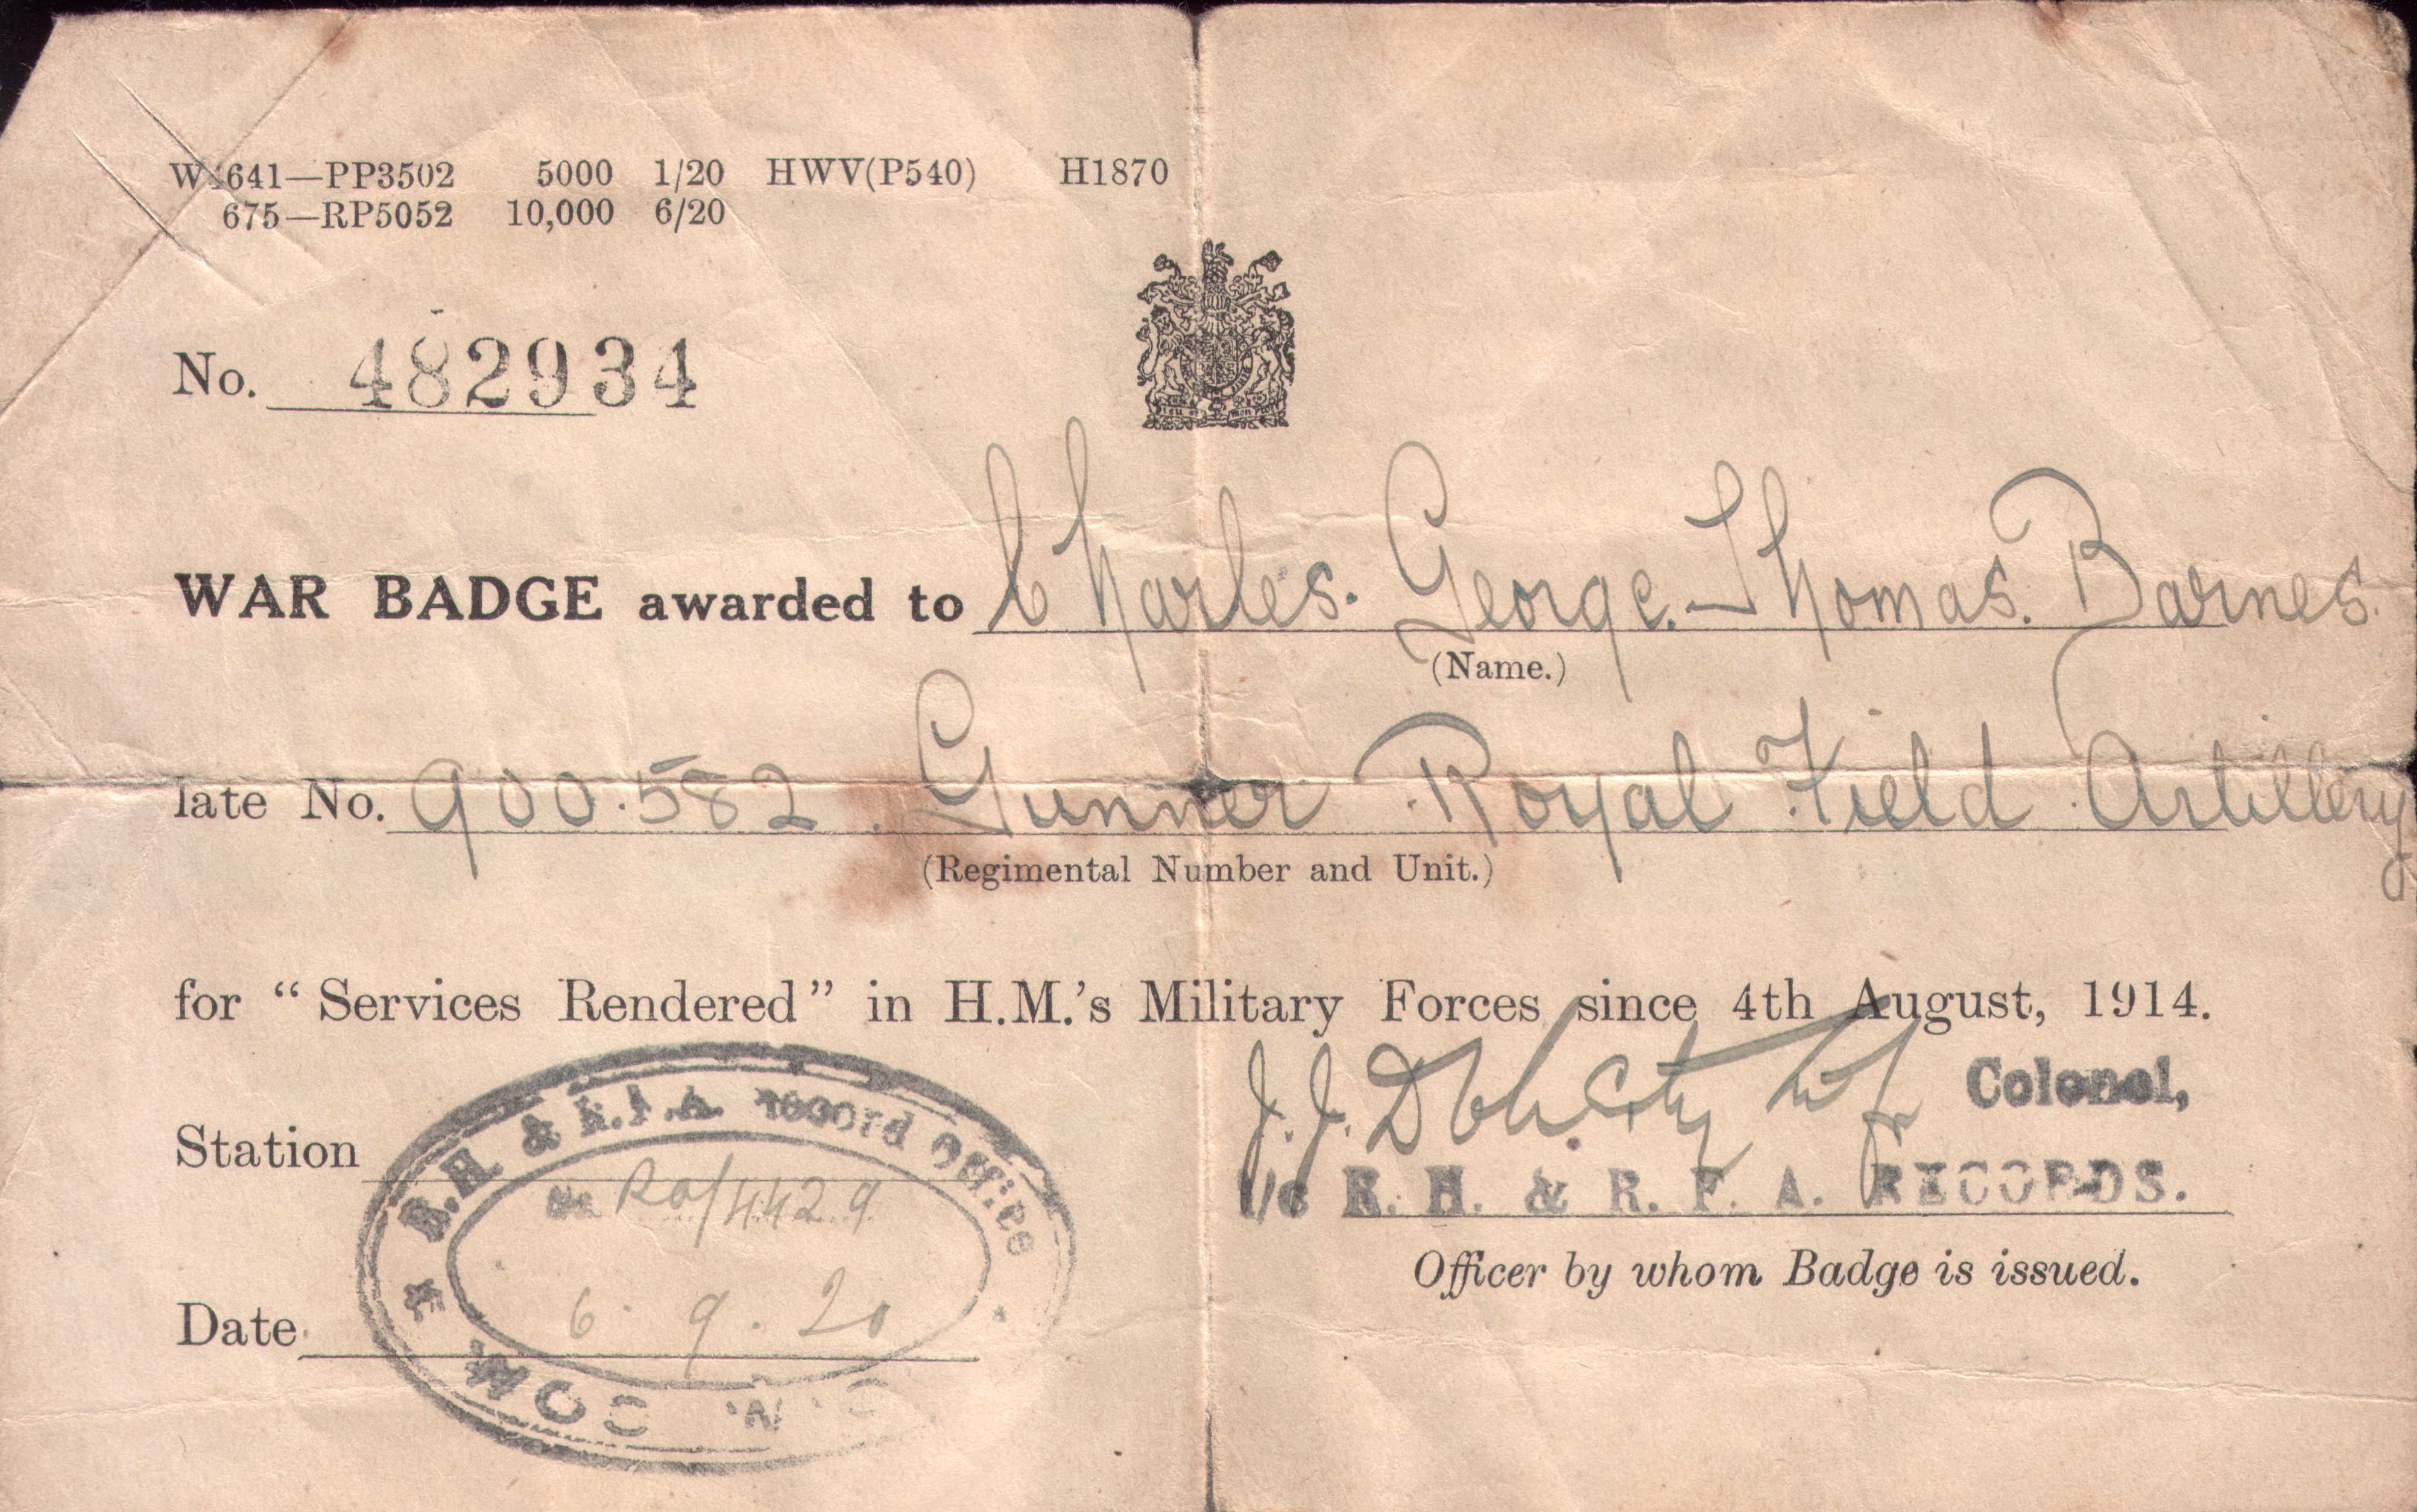 W4641—PP3502 5000 1/20 HWV(P540) H1870
675—RP5052 10,000 6/20
No. 482934
WAR BADGE awarded to Charles. George. Thomas. Barnes.
(Name.)
late No. 900.582. Gunner Royal Field Artillery
(Regimental Number and Unit.)
for "Services Rendered" in H.M.'s Military Forces since 4th August, 1914.
J. J. Doherty Colonel,
Station
R.H. & R.F.A. Record Office
I/c R. H. & R. F. A. RECORDS.
Officer by whom Badge is issued.
Date 6. 9. 20